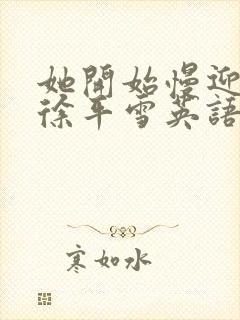 她開始慢迎
徐平雪英語
寒如水